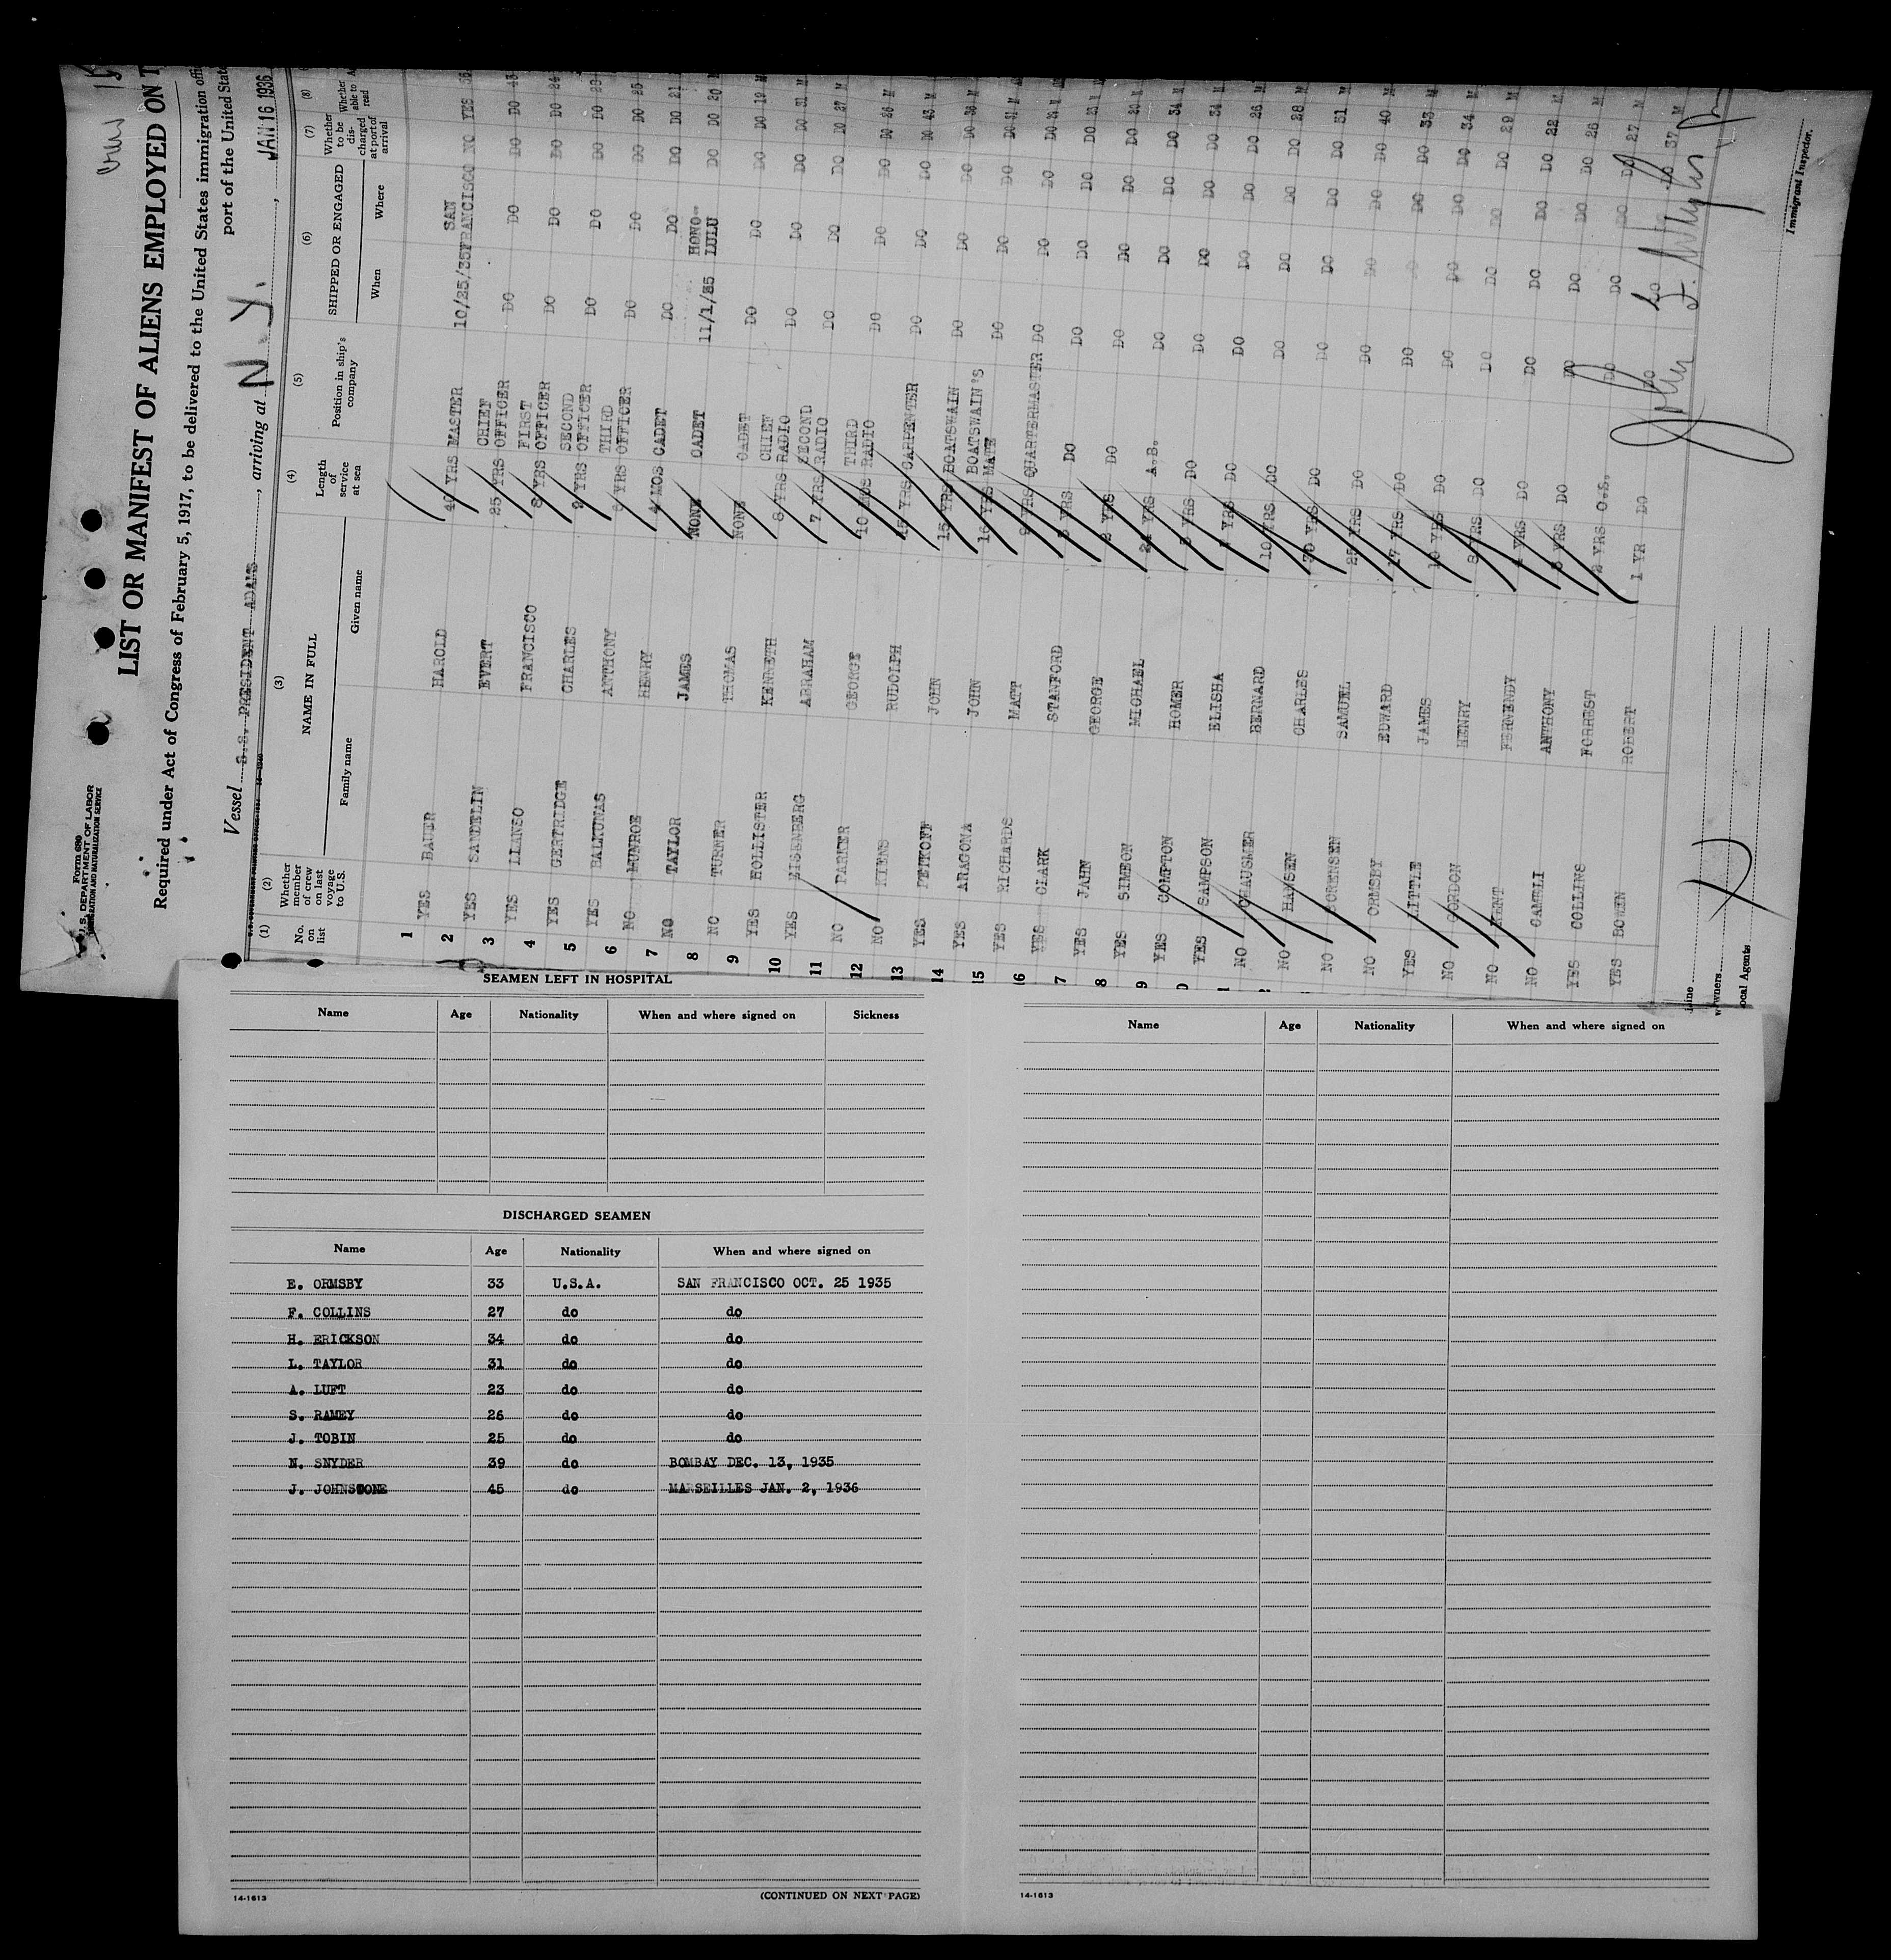 Form 680
U. S. DEPARTMENT OF LABOR
IMMIGRATION AND NATURALIZATION SERVICE
LIST OR MANIFEST OF ALIENS EMPLOYED ON T
Required under Act of Congress of February 5, 1917, to be delivered to the United States immigration offi
port of the United Stat
Vessel S.S. PRESIDENT ADAMS, arriving at N. Y. JAN 16 1936,
(1) (2) (3) (4) (5) (6) (7) (8)
No. on list
Whether member of crew on last voyage to U.S.
NAME IN FULL
Family name Given name
Length of service at sea
Position in ship's company
SHIPPED OR ENGAGED
When Where
Whether to be discharged at port of arrival
Whether able to read
1 YES BAUER HAROLD 40 YRS MASTER 10/25/35 SAN FRANCISCO NO YES
2 YES SANDELIN EVERT 25 YRS CHIEF OFFICER DO DO DO DO
3 YES LLANSO FRANCISCO 8 YRS FIRST OFFICER DO DO DO DO
4 YES GERTRIDGE CHARLES YRS SECOND OFFICER DO DO DO DO
5 YES BALKUNAS ANTHONY YRS THIRD OFFICER DO DO DO DO 25
6 NO MUNROE HENRY 4 MOS CADET DO DO DO DO 21
7 NO TAYLOR JAMES NONE CADET 11/1/35 HONO-LULU DO DO 20
8 NO TURNER THOMAS NONE CADET DO DO DO DO 19 M
9 YES HOLLISTER KENNETH 8 YRS CHIEF RADIO DO DO DO DO 31 M
10 YES EISENBERG ABRAHAM 7 YRS SECOND RADIO DO DO DO DO 27 M
11 NO PARKER GEORGE 10 MOS THIRD RADIO DO DO DO DO 26 M
12 NO KIENS RUDOLPH 15 YRS CARPENTER DO DO DO DO 43 M
13 YES PETKOFF JOHN 15 YRS BOATSWAIN DO DO DO DO 38 M
14 YES ARAGONA JOHN 16 YRS BOATSWAIN'S MATE DO DO DO DO M
15 YES RICHARDS MATT YRS QUARTERMASTER DO DO DO DO M
16 YES CLARK STANFORD YRS DO DO DO DO DO
7 YES JAHN GEORGE YRS DO DO DO DO DO M
8 YES SIMEON MICHAEL YRS A.B. DO DO DO DO 34 M
9 YES COMPTON HOMER YRS DO DO DO DO DO 34 M
YES SAMPSON ELISHA YRS DO DO DO DO DO 26 M
NO CHAUSMER BERNARD 10 YRS DO DO DO DO DO 28 M
NO HANSEN CHARLES YRS DO DO DO DO DO 51 M
NO SORENSEN SAMUEL 25 YRS DO DO DO DO DO 40 M
NO ORMSBY EDWARD 17 YRS DO DO DO DO DO 33 M
YES LITTLE JAMES YRS DO DO DO DO DO 34 M
NO GORDON HENRY YRS DO DO DO DO DO 29 M
NO KENT FERNENDY YRS DO DO DO DO DO 22 M
NO CAMELI ANTHONY YRS DO DO DO DO DO 26 M
YES COLLINS FORREST YRS O.S. DO DO DO DO 27 M
YES BOWEN ROBERT 1 YR DO DO DO DO 37 M
John
Immigrant Inspector.
Line
Owners
ocal Agents
SEAMEN LEFT IN HOSPITAL
Name Age Nationality When and where signed on Sickness
DISCHARGED SEAMEN
Name Age Nationality When and where signed on
E. ORMSBY 33 U.S.A. SAN FRANCISCO OCT. 25 1935
F. COLLINS 27 do do
H. ERICKSON 34 do do
L. TAYLOR 31 do do
A. LUFT 23 do do
S. RAMEY 26 do do
J. TOBIN 25 do do
N. SNYDER 39 do BOMBAY DEC. 13, 1935
J. JOHNSTONE 45 do MARSEILLES JAN. 2, 1936
14-1613
(CONTINUED ON NEXT PAGE)
Name Age Nationality When and where signed on
14-1613